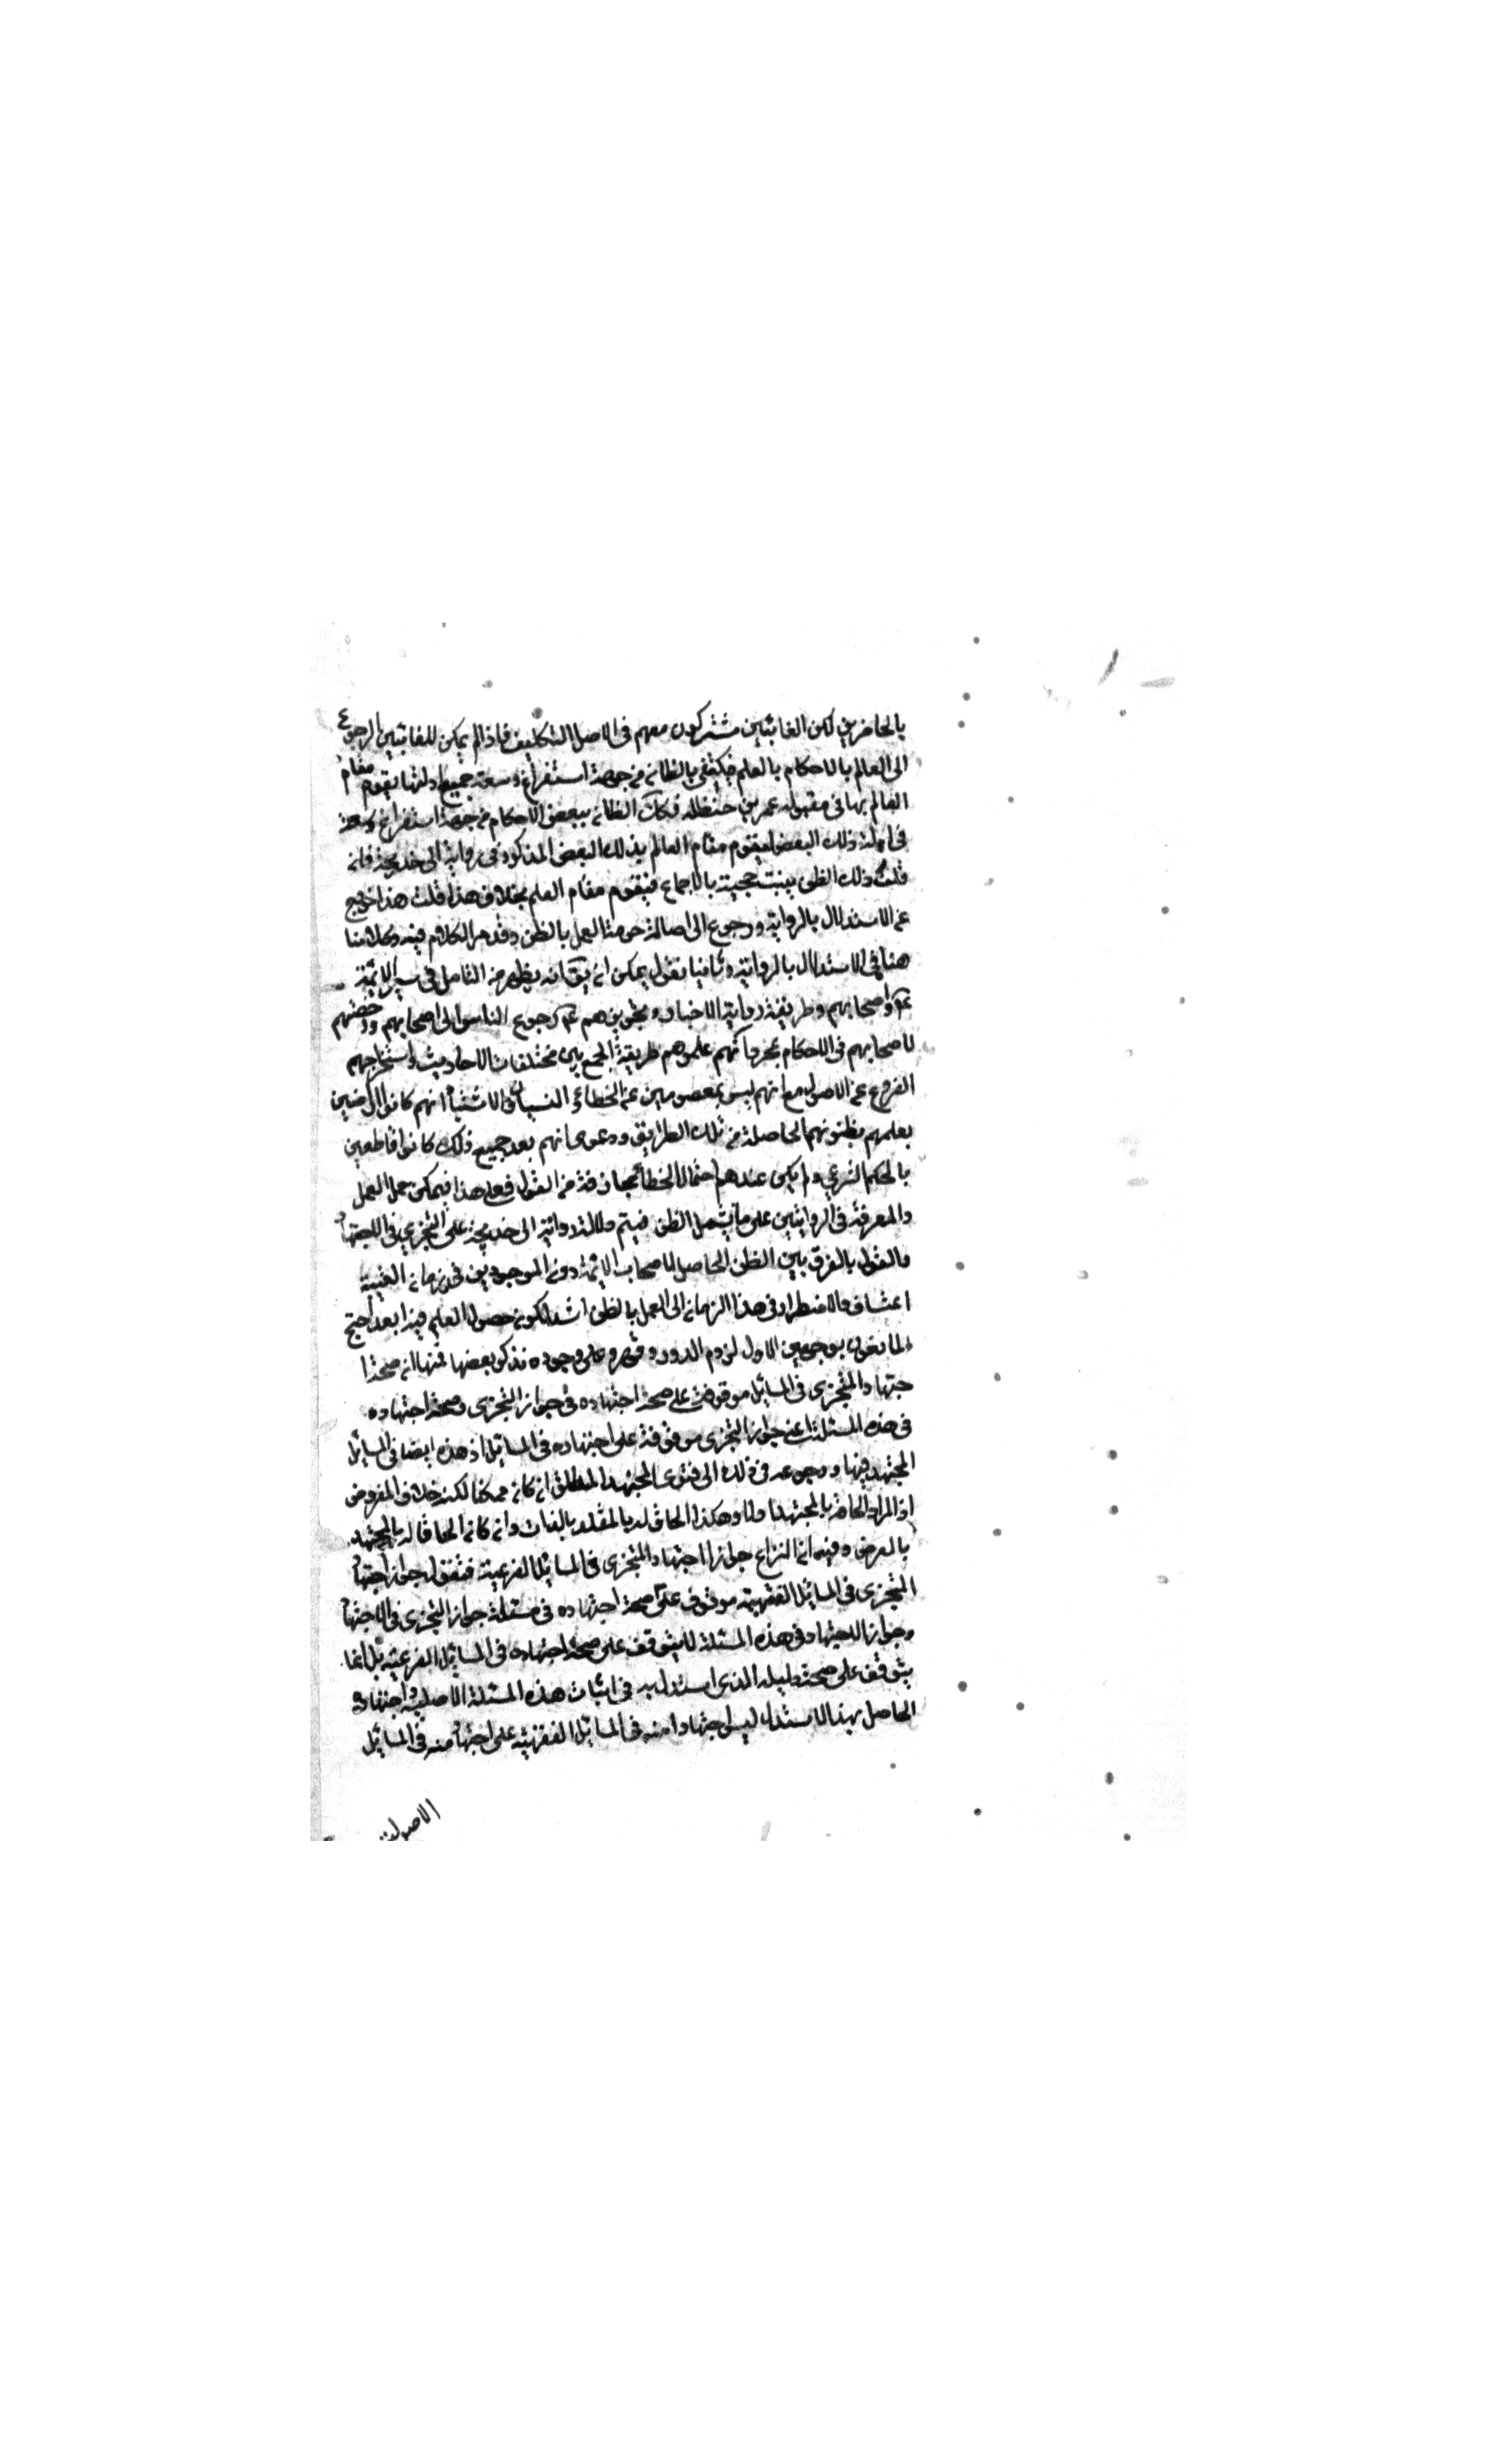 بالحاضرين لكن الغائبين مشتركون معهم فى الاصل التكليف فاذا لم يمكن للغائبين الرجوع
الى العالم بالاحكام بالعلم فيكتفى بالظان من جهة استفراغ وسعه جميع ادلتها يقوم مقام
العالم بها فى مقبولة عمر بن حنظله فكك الظان ببعض الاحكام من جهة استفراغ وسعه
فى ادلة ذلك البعض يقوم مقام العالم بذلك البعض المذكور فى رواية ابى خديجة فان
قلت ذلك الظن يثبت حجيته بالاجماع فيقوم مقام العلم بخلاف هذا قلت هذا خروج
عن الاستدلال بالرواية ورجوع الى اصالة حرمة العمل بالظن وقد مر الكلام فيه وكلامنا
هنا فى الاستدلال بالرواية وثانيا نقول يمكن ان يق انه يظهر من التامل فى سير الائمة
ع واصحابهم وطريقة رواية الاخبار وتجويزهم ع رجوع الناس الى اصحابهم ورخصتهم
لاصحابهم فى الاحكام بمجرد انهم علموهم طريقة الجمع بين مختلفات الاحاديث واستخراجهم
الفروع عن الاصول مع انهم ليس بمعصومين عن الخطاء و النسيان والاشتباه انهم كانوا راضين
بعلمهم بظنونهم الحاصلة من تلك الطرايق ودعوى انهم بعد جميع ذلك كانوا قاطعين
بالحكم الشرعى ولم يكن عندهم احتمال الخطأ مجازفة من القول فعلى هذا فيمكن حمل العلم
والمعرفة فى الروايتين على ما يشمل الظن فيتم دلالة رواية ابى خديجة على التجزى فى الاجتهاد
والقول بالفرق بين الظن الحاصل لاصحاب الائمة دون الموجودين فى زمان الغيبة
اعتساف والاضطرار فى هذا الزمان الى العمل بالظن اشد لكون حصول العلم فيه ابعد احتج
المانعون بوجهين الاول لزوم الدور وقرروه على وجوه نذكر بعضها فمنها ان صحة ا
جتهاد المتجزى فى المسائل موقوفة على صحة اجتهاده فى جواز التجزى وصحة اجتهاده
فى هذه المسئلة اعنى جواز التجزى موقوفة على اجتهاده فى المسائل اذ هذه ايضا فى المسائل
المجتهد فيها ورجوعه فى ذلك الى فتوى المجتهد المطلق ان كان ممكنا لكنه خلاف المفروض
اذ المراد الحاقه بالمجتهد اولا وهكذا الحاق له بالمقلد بالذات وان كان الحاقا له بالمجتهد
بالعرض وفيه ان النزاع جواز اجتهاد المتجزى فى المسائل الفرعية فنقول جواز اجتهاد
المتجزى فى المسائل الفقهية موقوف على صحة اجتهاده فى مسئلة جواز التجزى فى الاجتهاد
وجواز الاجتهاد فى هذه المسئلة لا يتوقف على صحة اجتهاده فى المسائل الفرعية بل انما
يتوقف على صحة دليله الذى استدل به فى اثبات هذه المسئلة الاصلية واجتهاده
الحاصل بهذا الاستدلال ليس اجتهادا منه فى المسائل الفقهية على اجتهاد منه فى المسائل
الاصولية